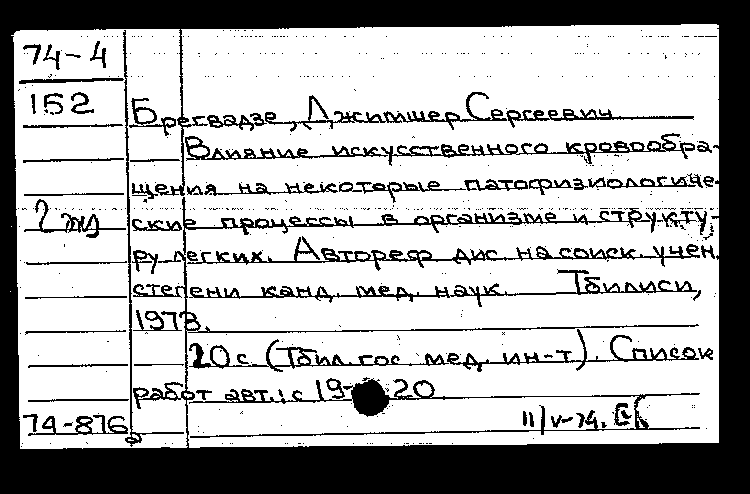 74-4
152
Брегвадзе, Джимшер Сергеевич
Влияние искусственного кровообра-
щения на некоторые патофизиологиче-
2 экз
ские процессы в организме и структу-
ру легких. Автореф дис. на соиск. учен.
степени канд. мед. наук. Тбилиси,
1973.
20 с. (Тбил. гос. мед. ин-т). Список
работ авт.: с 19-20
74-876
11/V-74.